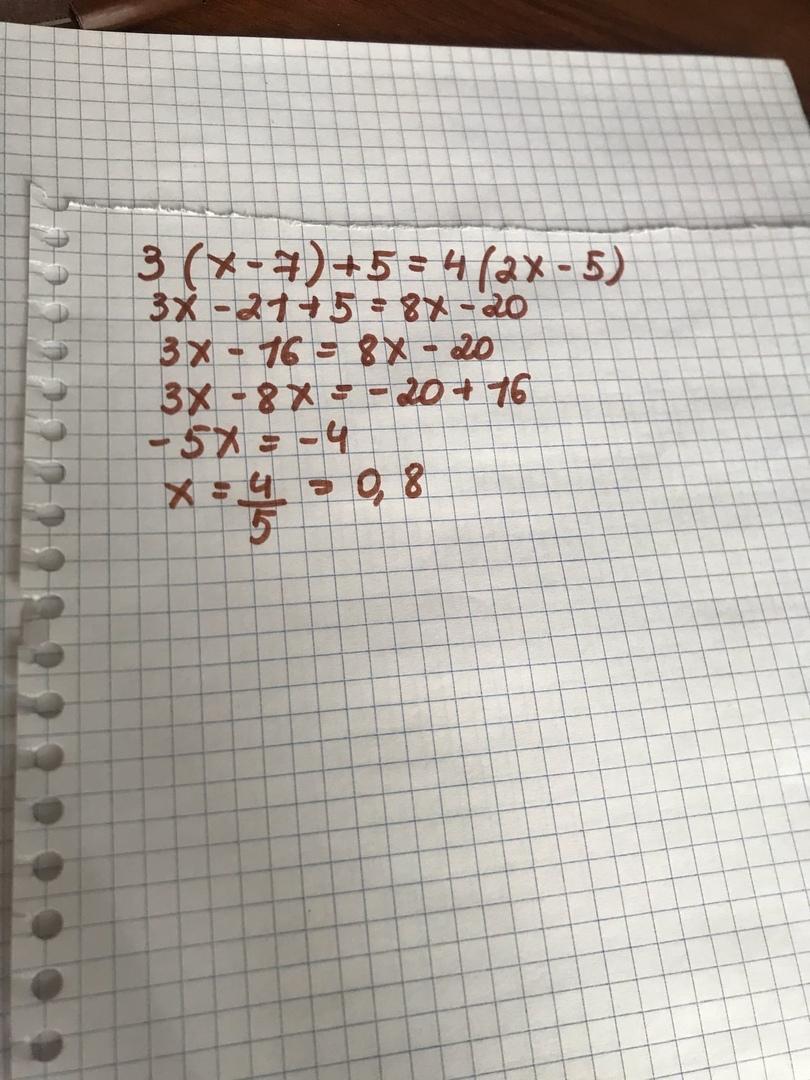 3(x-7)+5=4(2x-5)
3x-21+5=8x-20
3x-16=8x-20
3x-8x=-20+16
-5x=-4
x=4/5=0,8